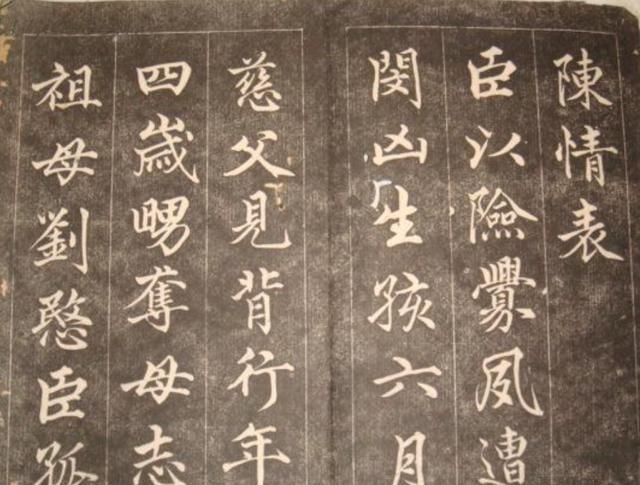 陳情表
臣以險釁夙遭
閔凶生孩六月
慈父見背行年
四歲甥奪母志
祖母劉愍臣孤